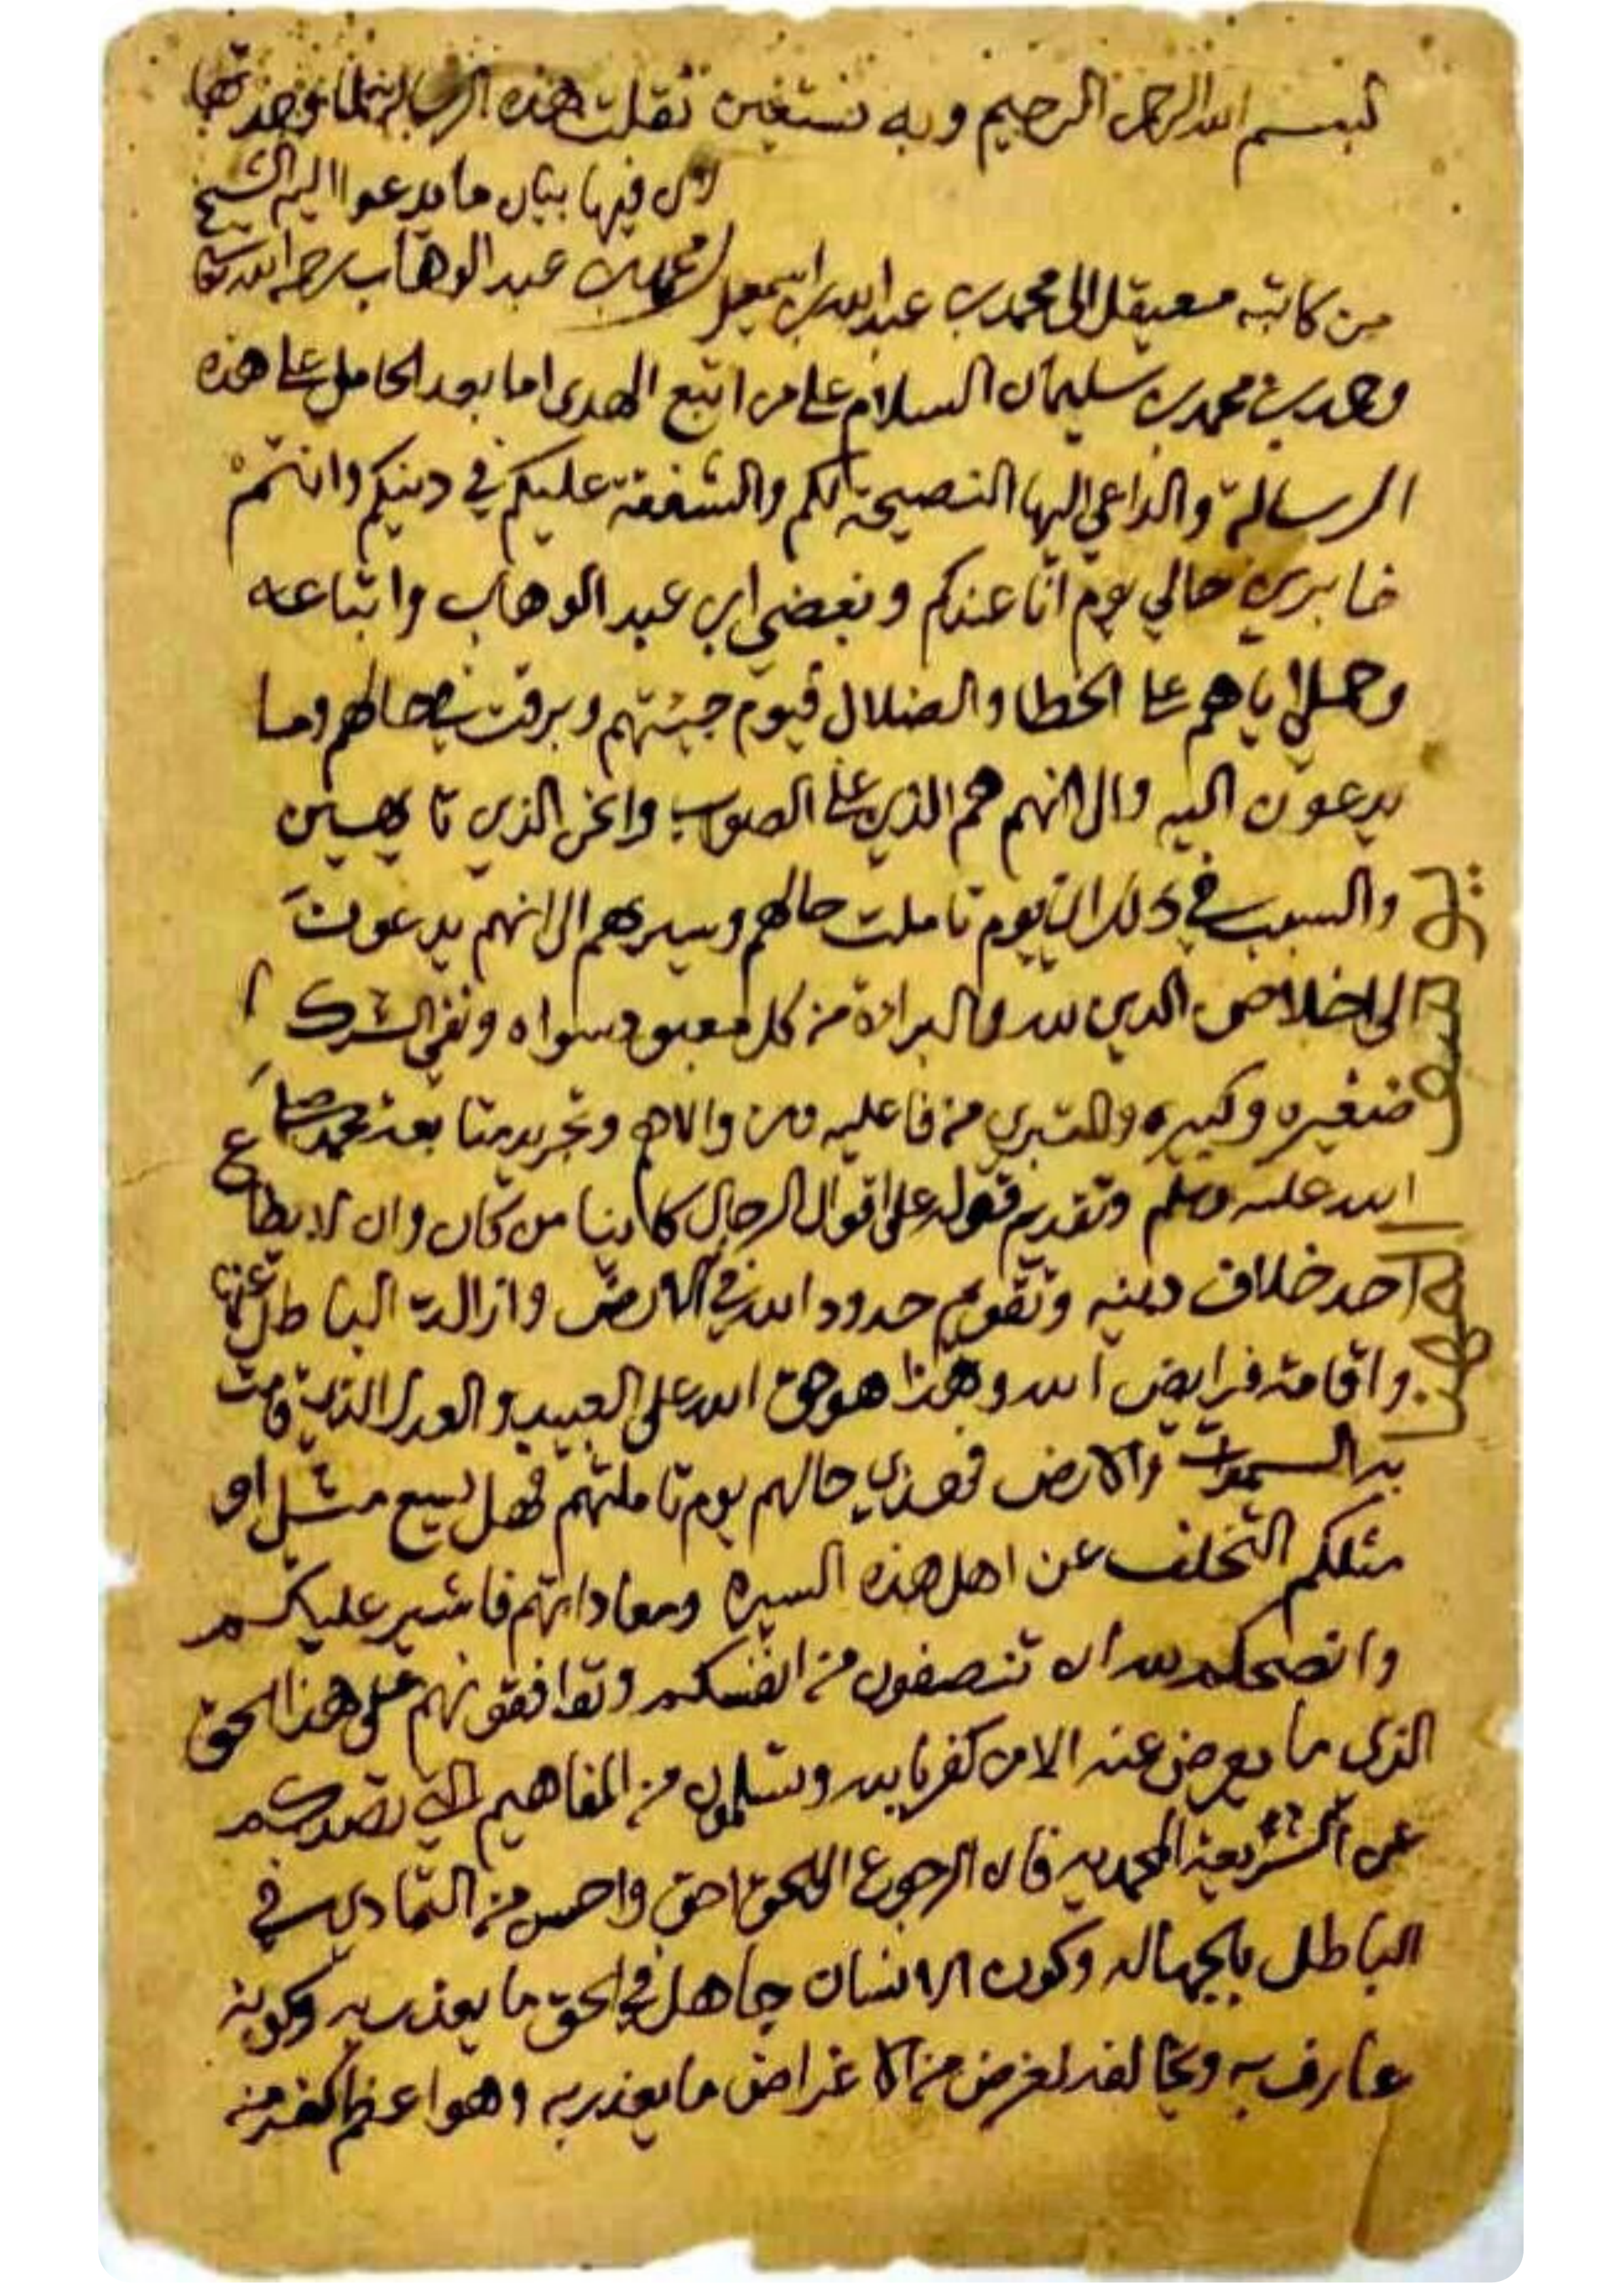 بسم الله الرحمن الرحيم وبه نستعين نقلت هذه الرسالة لما وجدتها
لان فيها بيان ما يدعوا اليه الشيخ
محمد بن عبد الوهاب رحمه الله تعا
من كاتبه معيقل الى محمد بن عبد الله بن اسمعيل
وحمد بن محمد بن سليمان السلام على من اتبع الهدى اما بعد الحامل على هذه
الرسالة والداعي اليها النصيحة لكم والشفقة عليكم في دينكم وانتم
خابرين حالي يوم انا عندكم وبغضي ابن عبد الوهاب واتباعه
وحملي اياهم على الخطا والضلال فيوم جيتهم وبرقت في حالهم وما
يدعون اليه والى انهم هم الذي على الصواب وانحن الذي تايهين
والسبب في ذلك اني يوم تاملت حالهم وسيرهم الى انهم يدعون
الى اخلاص الدين لله والبراءة من كل معبود سواه ونفي الشرك
صغيره وكبيره والتبري من فاعليه ومن والاهم وتجريد متابعة محمد صلى
الله عليه وسلم وتقديم قوله على اقوال الرجال كاينا من كان وان لا يطاع
احد خلاف دينه وتقويم حدود الله في الارض وازالة الباطل عنها
واقامة فرايض الله وهذا هو حق الله على العبيد والعدل الذي قامت
به السموات والارض فهذي حالهم يوم تاملتهم فهل يسع مثلي او
مثلكم التخلف عن اهل هذه السيرة ومعاداتهم فاشير عليكم
وانصحكم لله ان تنصفون من انفسكم وتوافقونهم على هذا الحق
الذي ما يعرض عنه الا من كفر بالله وتسلمون من المفاهيم التي تصدكم
عن الشريعة المحمديه فان الرجوع الى الحق احق واحسن من التمادي في
الباطل بالجهاله وكون الانسان جاهل في الحق ما يعذر به وكونه
عارف به ويخالفه لغرض من الاغراض ما يعذر به وهو اعظم كفر منه